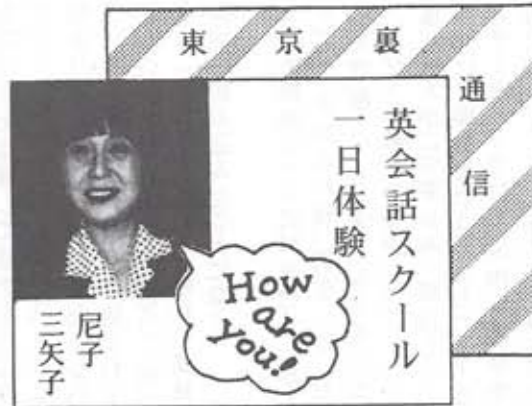 東京裏通信
英会話スクール
一日体験
How
are
you!
尼子
三矢子